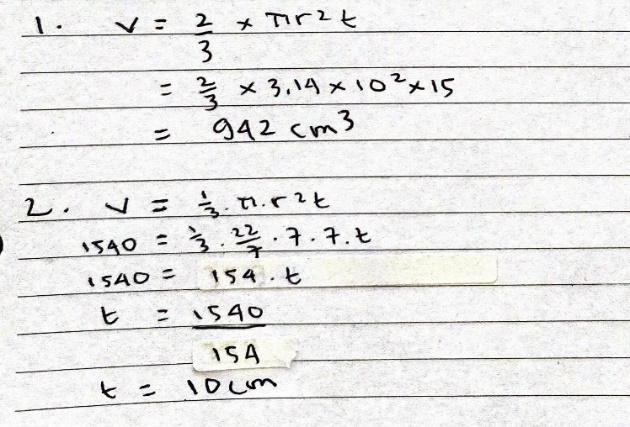 1. V = 2/3 x πr²t
= 2/3 x 3,14 x 10² x 15
= 942 cm³
2. V = 1/3 . π . r²t
1540 = 1/3 . 22/7 . 7 . 7 . t
1540 = 154 . t
t = 1540/154
t = 10 cm